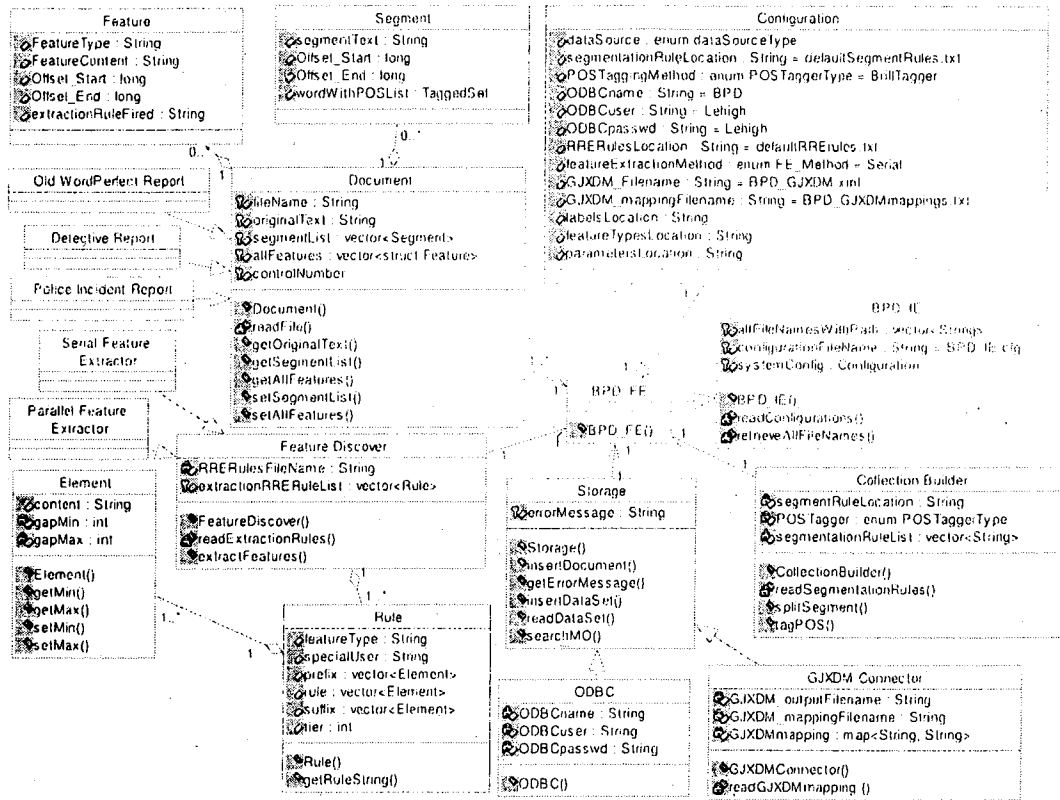 Feature
FeatureType : String
FeatureContent : String
Offset_Start : long
Offset_End : long
extractionRuleFired : String
Segment
segmentText : String
Offset_Start : long
Offset_End : long
wordWithPOSList : TaggedSet
Configuration
dataSource : enum dataSourceType
segmentationRuleLocation : String = defaultSegmentRules.txt
POSTaggingMethod : enum POSTaggerType = BrillTagger
ODBCname : String = BPD
ODBCuser : String = Lehigh
ODBCpasswd : String = Lehigh
RRERulesLocation : String = defaultRRErules.txt
featureExtractionMethod : enum FE_Method = Serial
GJXDM_Filename : String = BPD_GJXDM.xml
GJXDM_mappingFilename : String = BPD_GJXDMmappings.txt
labelsLocation : String
featureTypesLocation : String
parametersLocation : String
0..*
1
0..*
1
Old WordPerfect Report
Detective Report
Police Incident Report
Document
fileName : String
originalText : String
segmentList : vector<Segment>
allFeatures : vector<struct Feature>
controlNumber
Document()
readFile()
getOriginalText()
getSegmentList()
getAllFeatures()
setSegmentList()
setAllFeatures()
Serial Feature
Extractor
Parallel Feature
Extractor
BPD_IE
allFileNamesWithPath : vector<String>
configurationFileName : String = BPD_IE.cfg
systemConfig : Configuration
BPD_IE()
readConfigurations()
retrieveAllFileNames()
BPD_FE
BPD_FE()
Feature Discover
RRERulesFileName : String
extractionRRERuleList : vector<Rule>
FeatureDiscover()
readExtractionRules()
extractFeatures()
Element
content : String
gapMin : int
gapMax : int
Element()
getMin()
getMax()
setMin()
setMax()
1..*
1
1
1..*
Rule
featureType : String
specialUser : String
prefix : vector<Element>
rule : vector<Element>
suffix : vector<Element>
tier : int
Rule()
getRuleString()
Storage
errorMessage : String
Storage()
insertDocument()
getErrorMessage()
insertDataSet()
readDataSet()
searchMO()
Collection Builder
segmentRuleLocation : String
POSTagger : enum POSTaggerType
segmentationRuleList : vector<String>
CollectionBuilder()
readSegmentationRules()
splitSegment()
tagPOS()
ODBC
ODBCname : String
ODBCuser : String
ODBCpasswd : String
ODBC()
GJXDM Connector
GJXDM_outputFilename : String
GJXDM_mappingFilename : String
GJXDMmapping : map<String, String>
GJXDMConnector()
readGJXDMmapping ()